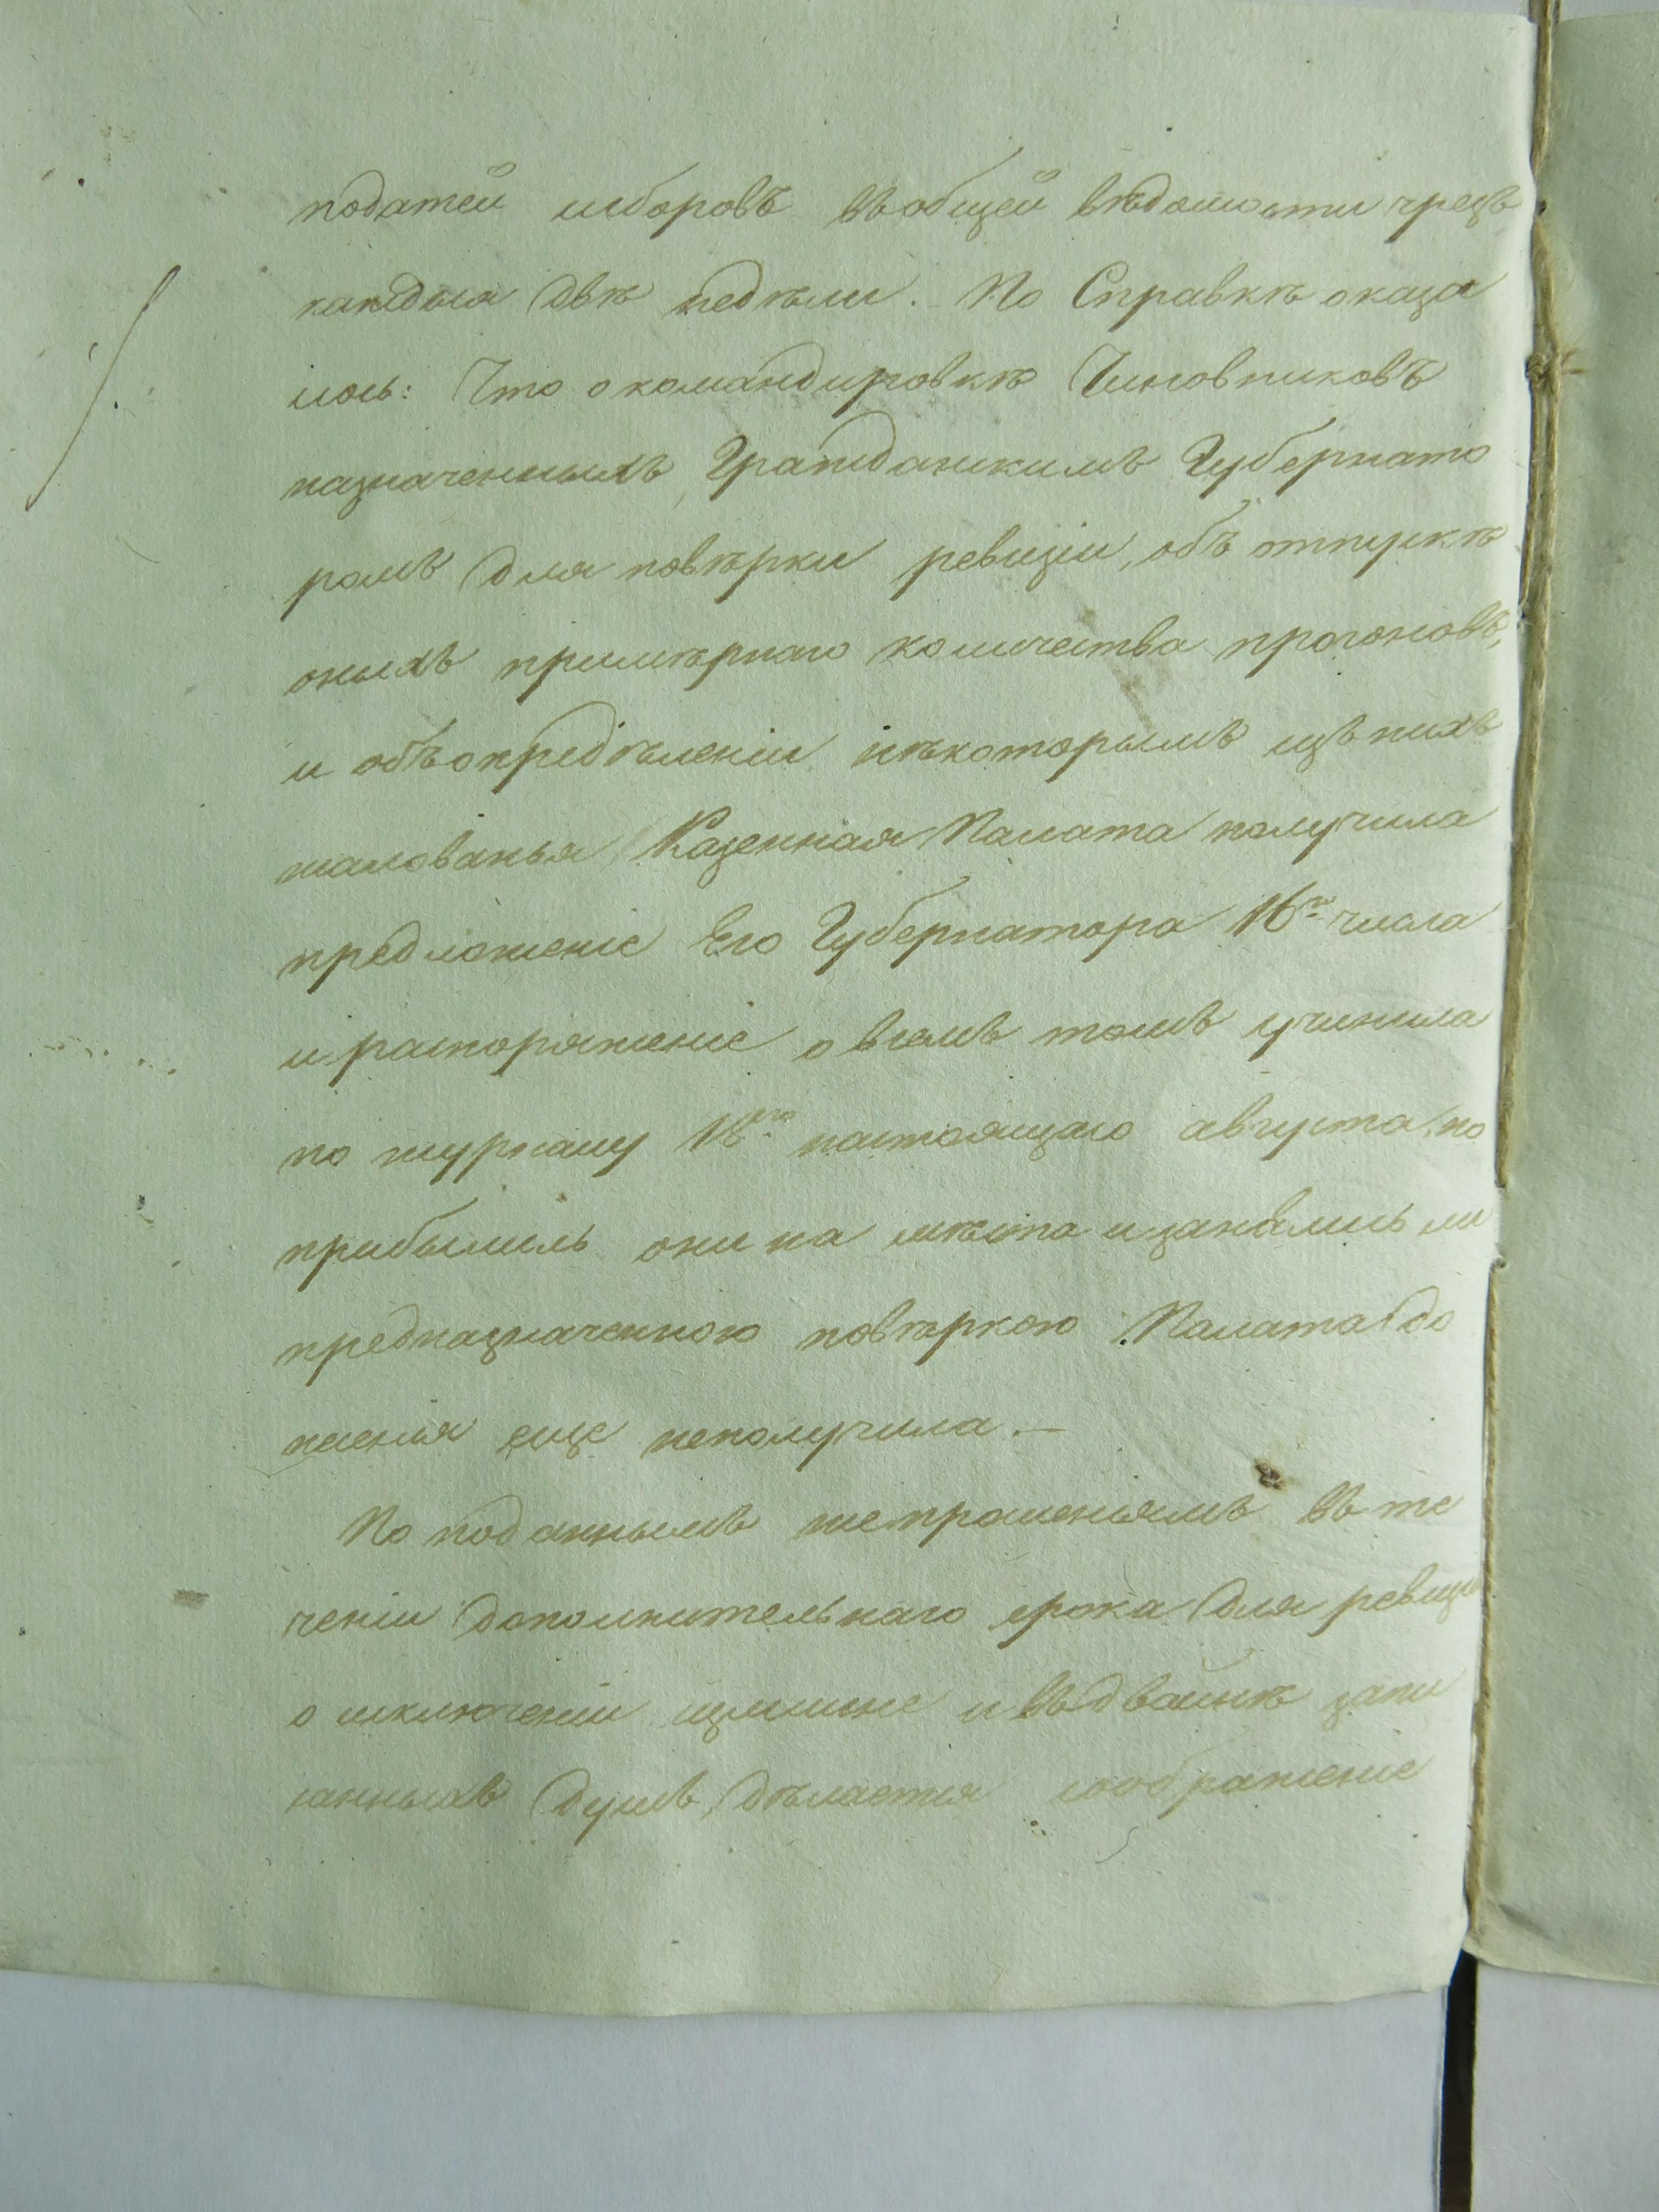 податей исборовъ ввобщей вѣдомости чрезъ
каждыя двѣ недѣли. По Справкѣ оказа
лось: Что о командировкѣ Чиновниковъ
назначенныхъ Гражданскимъ Губернато
ромъ для повѣрки ревизіи, объ отпускѣ
оныхъ примѣрнаго количества прогоновъ,
и объопредѣленіи нѣкоторымъ изъ нихъ
жалованья Казенная Палата получила
предложеніе Его Губернатора 16го числа
и распоряженіе о всемъ томъ учинила
по журналу 18го настоящаго августа, но
прибылиль они на мѣста изанялись ли
предназначенною повѣркою Палата до
несенія еще неполучила. —
По поданнымъ жепрошеньямъ въ те
ченіи дополнительнаго срока для ревизіи
о исключеніи излишне и вдвойнѣ запи
санныхъ душъ, дѣлается соображеніе